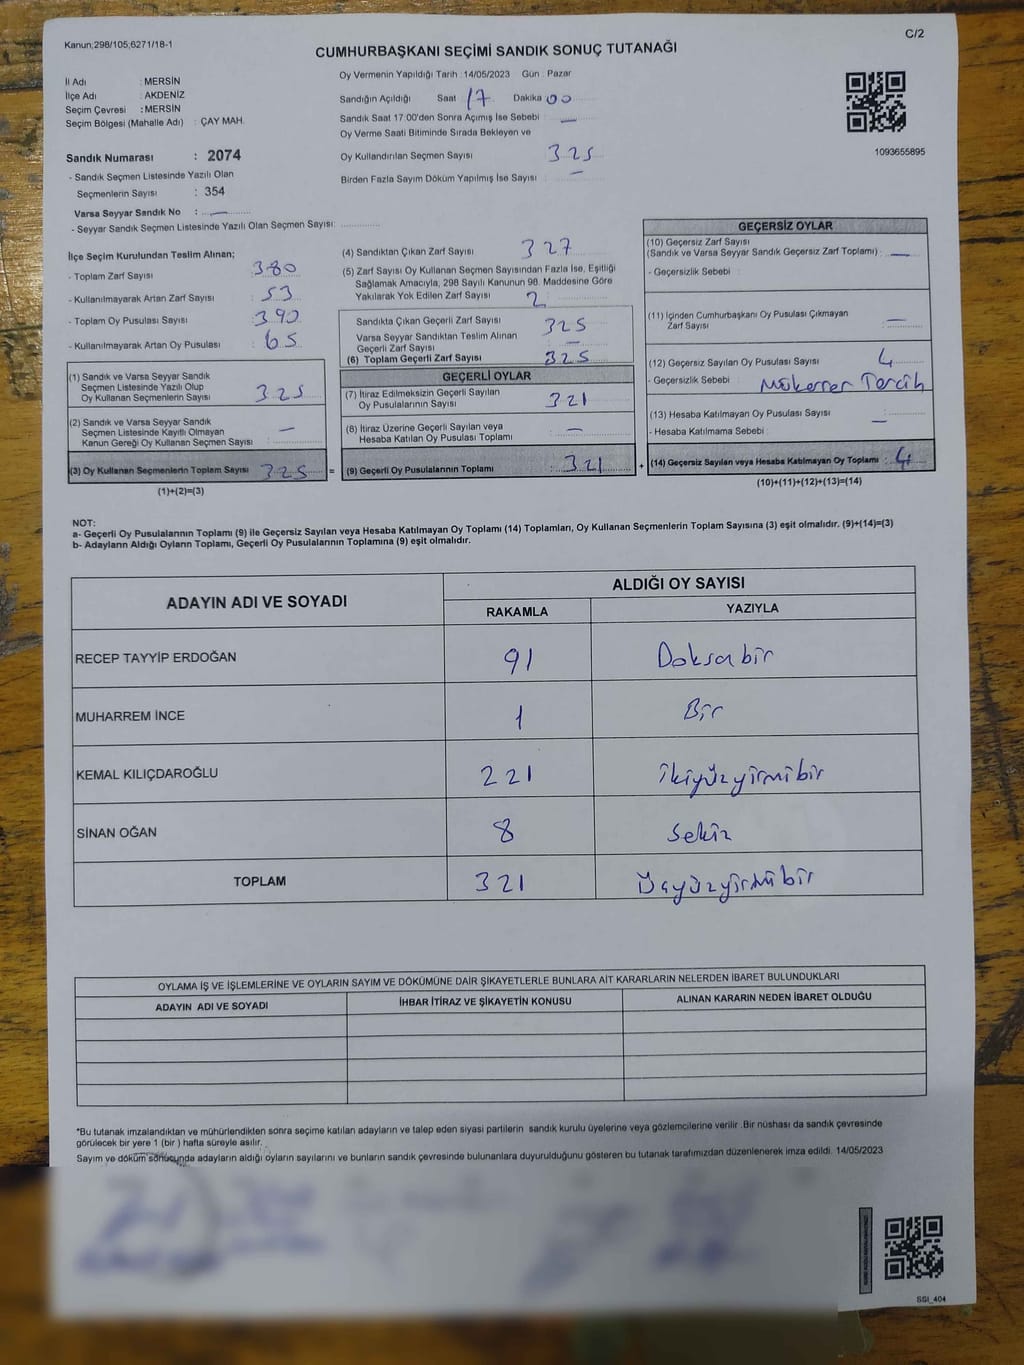 Kanun;298/105;6271/18-1
C/2
CUMHURBAŞKANI SEÇİMİ SANDIK SONUÇ TUTANAĞI
İl Adı : MERSİN
İlçe Adı : AKDENİZ
Seçim Çevresi : MERSİN
Seçim Bölgesi (Mahalle Adı) : ÇAY MAH.
Sandık Numarası : 2074
- Sandık Seçmen Listesinde Yazılı Olan
Seçmenlerin Sayısı : 354
Varsa Seyyar Sandık No : —
- Seyyar Sandık Seçmen Listesinde Yazılı Olan Seçmen Sayısı:
Oy Vermenin Yapıldığı Tarih :14/05/2023 Gün : Pazar
Sandığın Açıldığı Saat 17 Dakika 00
Sandık Saat 17:00'den Sonra Açımış İse Sebebi : —
Oy Verme Saati Bitiminde Sırada Bekleyen ve
Oy Kullandırılan Seçmen Sayısı 325
Birden Fazla Sayım Döküm Yapılmış İse Sayısı : —
1093655895
İlçe Seçim Kurulundan Teslim Alınan;
- Toplam Zarf Sayısı : 380
- Kullanılmayarak Artan Zarf Sayısı : 53
- Toplam Oy Pusulası Sayısı : 390
- Kullanılmayarak Artan Oy Pusulası : 65
(1) Sandık ve Varsa Seyyar Sandık
Seçmen Listesinde Yazılı Olup
Oy Kullanan Seçmenlerin Sayısı : 325
(2) Sandık ve Varsa Seyyar Sandık
Seçmen Listesinde Kayıtlı Olmayan
Kanun Gereği Oy Kullanan Seçmen Sayısı : —
(3) Oy Kullanan Seçmenlerin Toplam Sayısı 325
(1)+(2)=(3)
(4) Sandıktan Çıkan Zarf Sayısı : 327
(5) Zarf Sayısı Oy Kullanan Seçmen Sayısından Fazla İse, Eşitliği
Sağlamak Amacıyla, 298 Sayılı Kanunun 98. Maddesine Göre
Yakılarak Yok Edilen Zarf Sayısı : 2
Sandıkta Çıkan Geçerli Zarf Sayısı : 325
Varsa Seyyar Sandıktan Teslim Alınan
Geçerli Zarf Sayısı : —
(6) Toplam Geçerli Zarf Sayısı 325
GEÇERLİ OYLAR
(7) İtiraz Edilmeksizin Geçerli Sayılan
Oy Pusulalarının Sayısı : 321
(8) İtiraz Üzerine Geçerli Sayılan veya
Hesaba Katılan Oy Pusulası Toplamı : —
= (9) Geçerli Oy Pusulalarının Toplamı : 321
GEÇERSİZ OYLAR
(10) Geçersiz Zarf Sayısı
(Sandık ve Varsa Seyyar Sandık Geçersiz Zarf Toplamı) : —
- Geçersizlik Sebebi :
(11) İçinden Cumhurbaşkanı Oy Pusulası Çıkmayan
Zarf Sayısı : —
(12) Geçersiz Sayılan Oy Pusulası Sayısı : 4
- Geçersizlik Sebebi : Mükerrer Tercih
(13) Hesaba Katılmayan Oy Pusulası Sayısı : —
- Hesaba Katılmama Sebebi :
+ (14) Geçersiz Sayılan veya Hesaba Katılmayan Oy Toplamı : 4
(10)+(11)+(12)+(13)=(14)
NOT:
a- Geçerli Oy Pusulalarının Toplamı (9) ile Geçersiz Sayılan veya Hesaba Katılmayan Oy Toplamı (14) Toplamları, Oy Kullanan Seçmenlerin Toplam Sayısına (3) eşit olmalıdır. (9)+(14)=(3)
b- Adayların Aldığı Oyların Toplamı, Geçerli Oy Pusulalarının Toplamına (9) eşit olmalıdır.
ADAYIN ADI VE SOYADI
ALDIĞI OY SAYISI
RAKAMLA YAZIYLA
RECEP TAYYİP ERDOĞAN 91 Doksabir
MUHARREM İNCE 1 Bir
KEMAL KILIÇDAROĞLU 221 ikiyüzyirmibir
SİNAN OĞAN 8 Sekiz
TOPLAM 321 Üçyüzyirmibir
OYLAMA İŞ VE İŞLEMLERİNE VE OYLARIN SAYIM VE DÖKÜMÜNE DAİR ŞİKAYETLERLE BUNLARA AİT KARARLARIN NELERDEN İBARET BULUNDUKLARI
ADAYIN ADI VE SOYADI İHBAR İTİRAZ VE ŞİKAYETİN KONUSU ALINAN KARARIN NEDEN İBARET OLDUĞU
*Bu tutanak imzalandıktan ve mühürlendikten sonra seçime katılan adayların ve talep eden siyasi partilerin sandık kurulu üyelerine veya gözlemcilerine verilir .Bir nüshası da sandık çevresinde
görülecek bir yere 1 (bir ) hafta süreyle asılır.
Sayım ve döküm sonucunda adayların aldığı oyların sayılarını ve bunların sandık çevresinde bulunanlara duyurulduğunu gösteren bu tutanak tarafımızdan düzenlenerek imza edildi. 14/05/2023
SGI_404